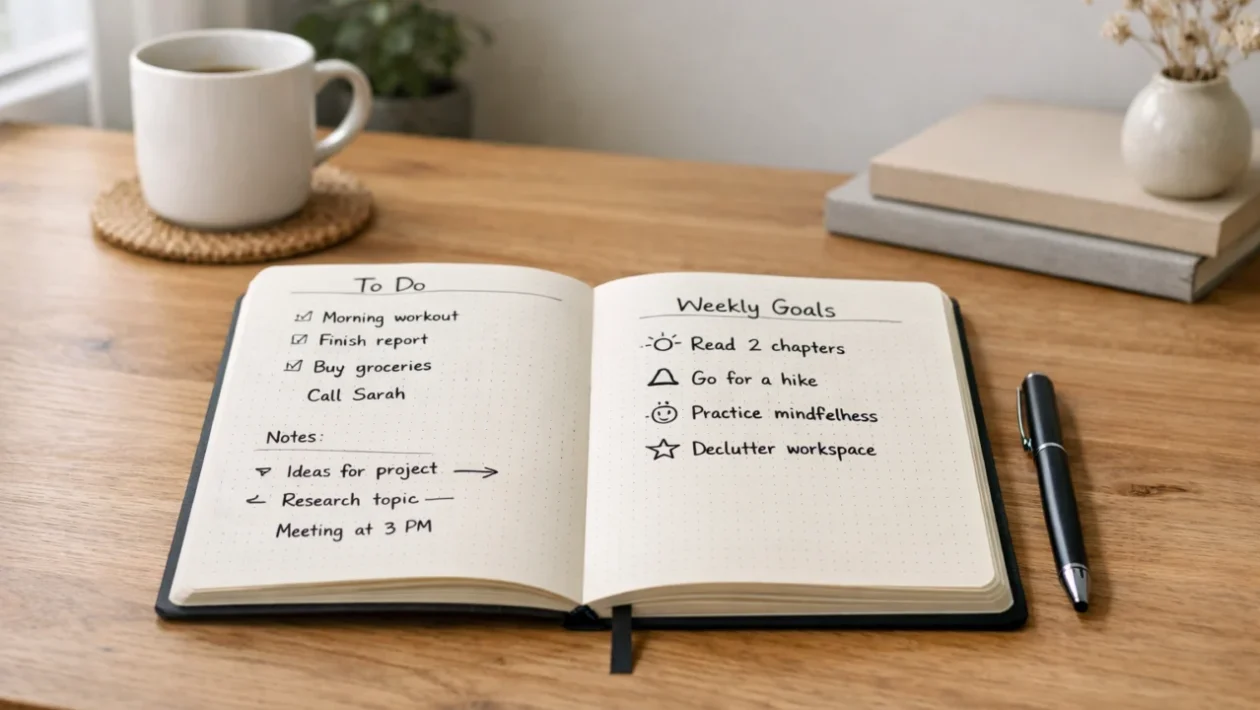 To Do
Morning workout
Finish report
Buy groceries
Call Sarah
Notes:
Ideas for project
Research topic
Meeting at 3 PM
Weekly Goals
Read 2 chapters
Go for a hike
Practice mindfelhess
Declutter workspace